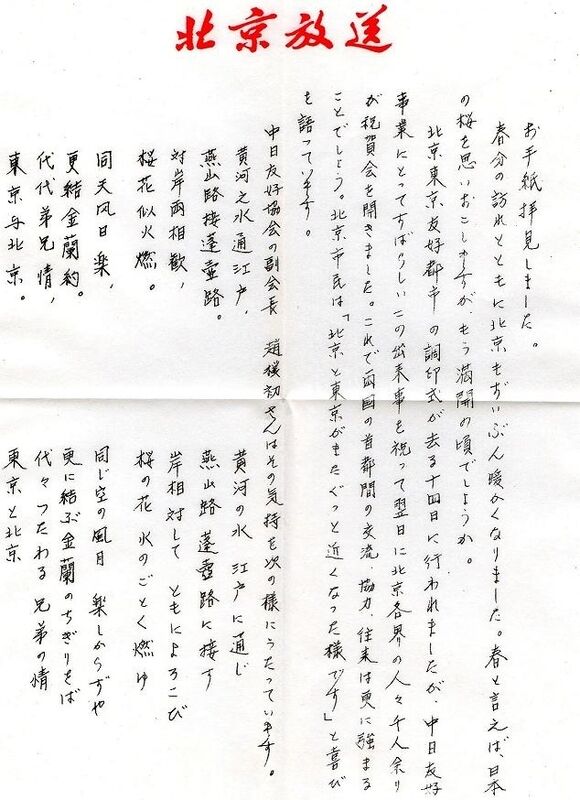 北京放送
お手紙拝見しました。
春分の訪れとともに北京もずいぶん暖かくなりました。春と言えば、日本
の桜を思いおこしますが、もう満開の頃でしょうか。
北京東京友好都市の調印式が去る十四日に行われましたが、中日友好
事業にとってすばらしいこの出来事を祝って翌日に北京各界の人々千人余り
が祝賀会を開きました。これで両国の首都間の交流、協力、往来は更に強まる
ことでしょう。北京市民は「北京と東京がまたぐっと近くなった様です」と喜び
を語っています。
中日友好協会の副会長 趙樸初さんはその気持を次の様にうたっています。
黄河之水通江戸，
燕山路接蓬壺路。
対岸両相歓，
桜花似火燃。
同天风日楽，
更結金蘭約。
代代弟兄情，
東京与北京。
黄河の水 江戸に通じ
燕山路 蓬壺路に接す
岸相対して ともによろこび
桜の花 火のごとく燃ゆ
同じ空の風月 楽しからずや
更に結ぶ金蘭のちぎりをば
代々つたわる 兄弟の情
東京と北京